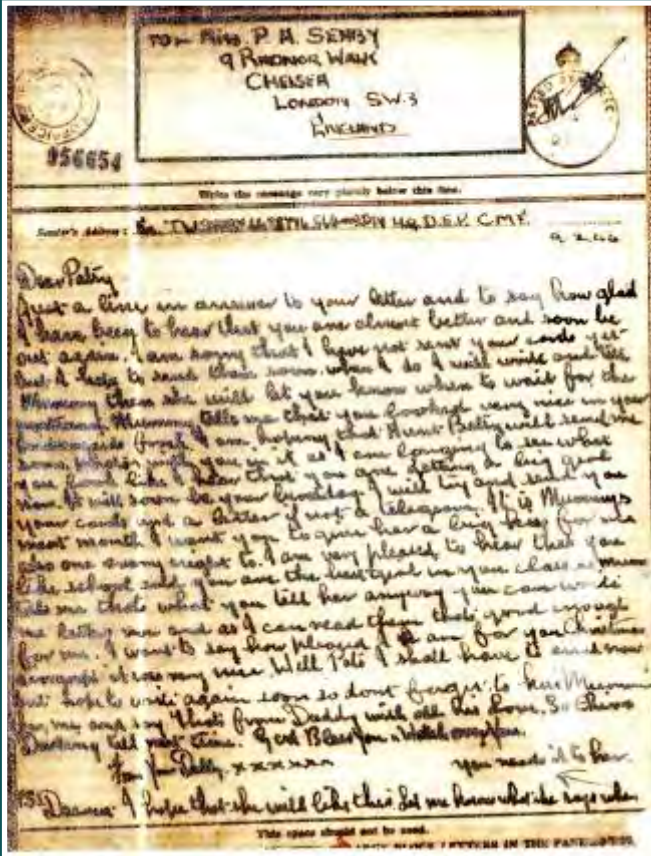 TO:- Miss P. A. SENBY
9 RADNOR WALK
CHELSEA
LONDON SW.3
ENGLAND
956654
Write the message very plainly below this line.
Sender's Address: H.Q. D.E.F. C.M.F.
9.2.46
Dear Patsy
Just a line in answer to your letter and to say how glad
I have been to hear that you are almost better and soon be
out again. I am sorry that I have not sent your cards yet
but I hope to send them soon when I do I will write and tell
Mummy then she will let you know when to wait for the
postman. Mummy tells me that you looked very nice in your
I am hoping that Aunt Betty will send me
some photos with you in it as I am longing to see what
you look like I hear that you are getting a big girl
now. It will soon be your birthday I will try and send you
your cards and a letter if not a telegram. It is Mummys
next month I want you to give her a big kiss for me
also one every night to. I am very pleased to hear that you
like school and you are the best girl in your class as Mum
tells me thats what you tell her anyway you can write
me letters now and as I can read them thats good enough
for me. I want to say how pleased I am for you Christmas
it was very nice. Well Pats I shall have to end now
but hope to write again soon so dont forget to kiss Mummie
for me and say thats from Daddy with all his love. So Cheerio
Darling till next time. God Bless You & Watch over You.
From Your Daddy. xxxxxx you read it to her.
P.S. I hope that she will like this let me know what she says when
This space should not be used.
BLOCK LETTERS IN THE PANEL